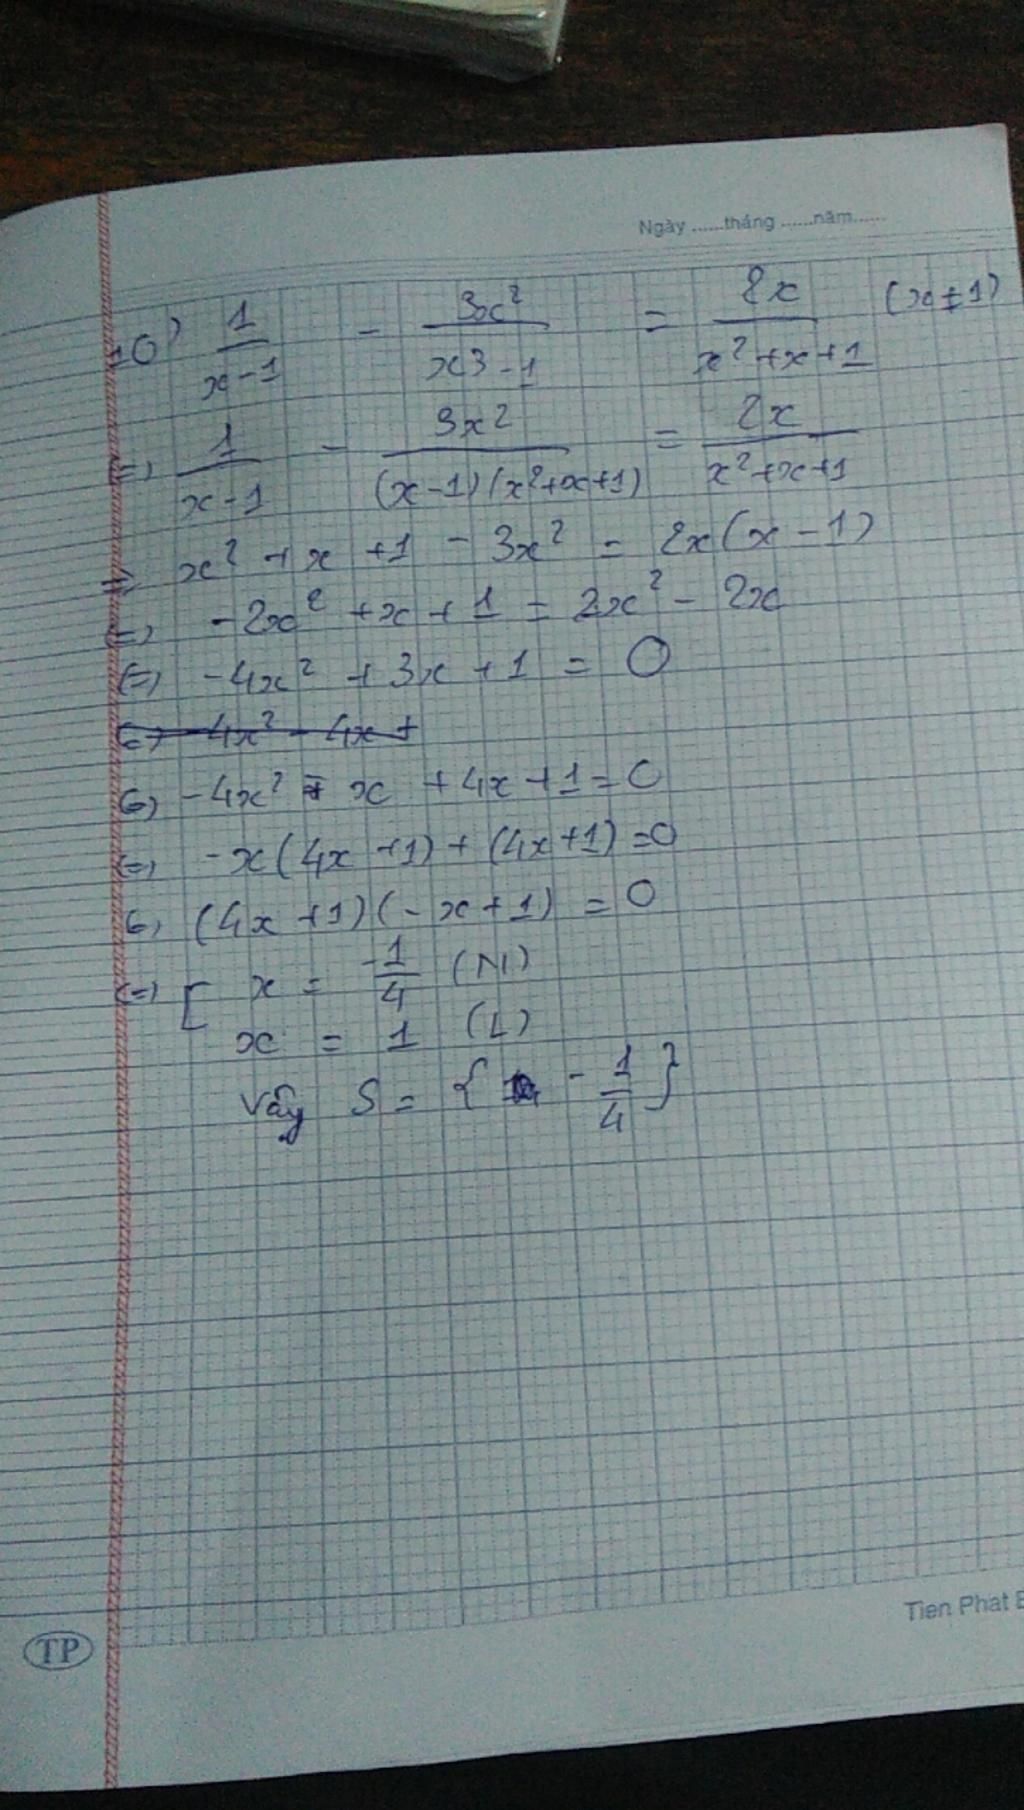 Ngày ......tháng ......năm......
10) 1/(x-1) - 3x²/(x3-1) = 2x/(x²+x+1) (x≠1)
(=) 1/(x-1) - 3x²/((x-1)(x²+x+1)) = 2x/(x²+x+1)
=> x² + x + 1 - 3x² = 2x(x-1)
(=) -2x² + x + 1 = 2x² - 2x
(=) -4x² + 3x + 1 = 0
(=) -4x² - 4x +
(=) -4x² - x + 4x + 1 = 0
(=) -x(4x+1) + (4x+1) = 0
(=) (4x+1)(-x+1) = 0
(=) [ x = -1/4 (N)
x = 1 (L)
Vậy S = { -1/4 }
Tien Phat
TP